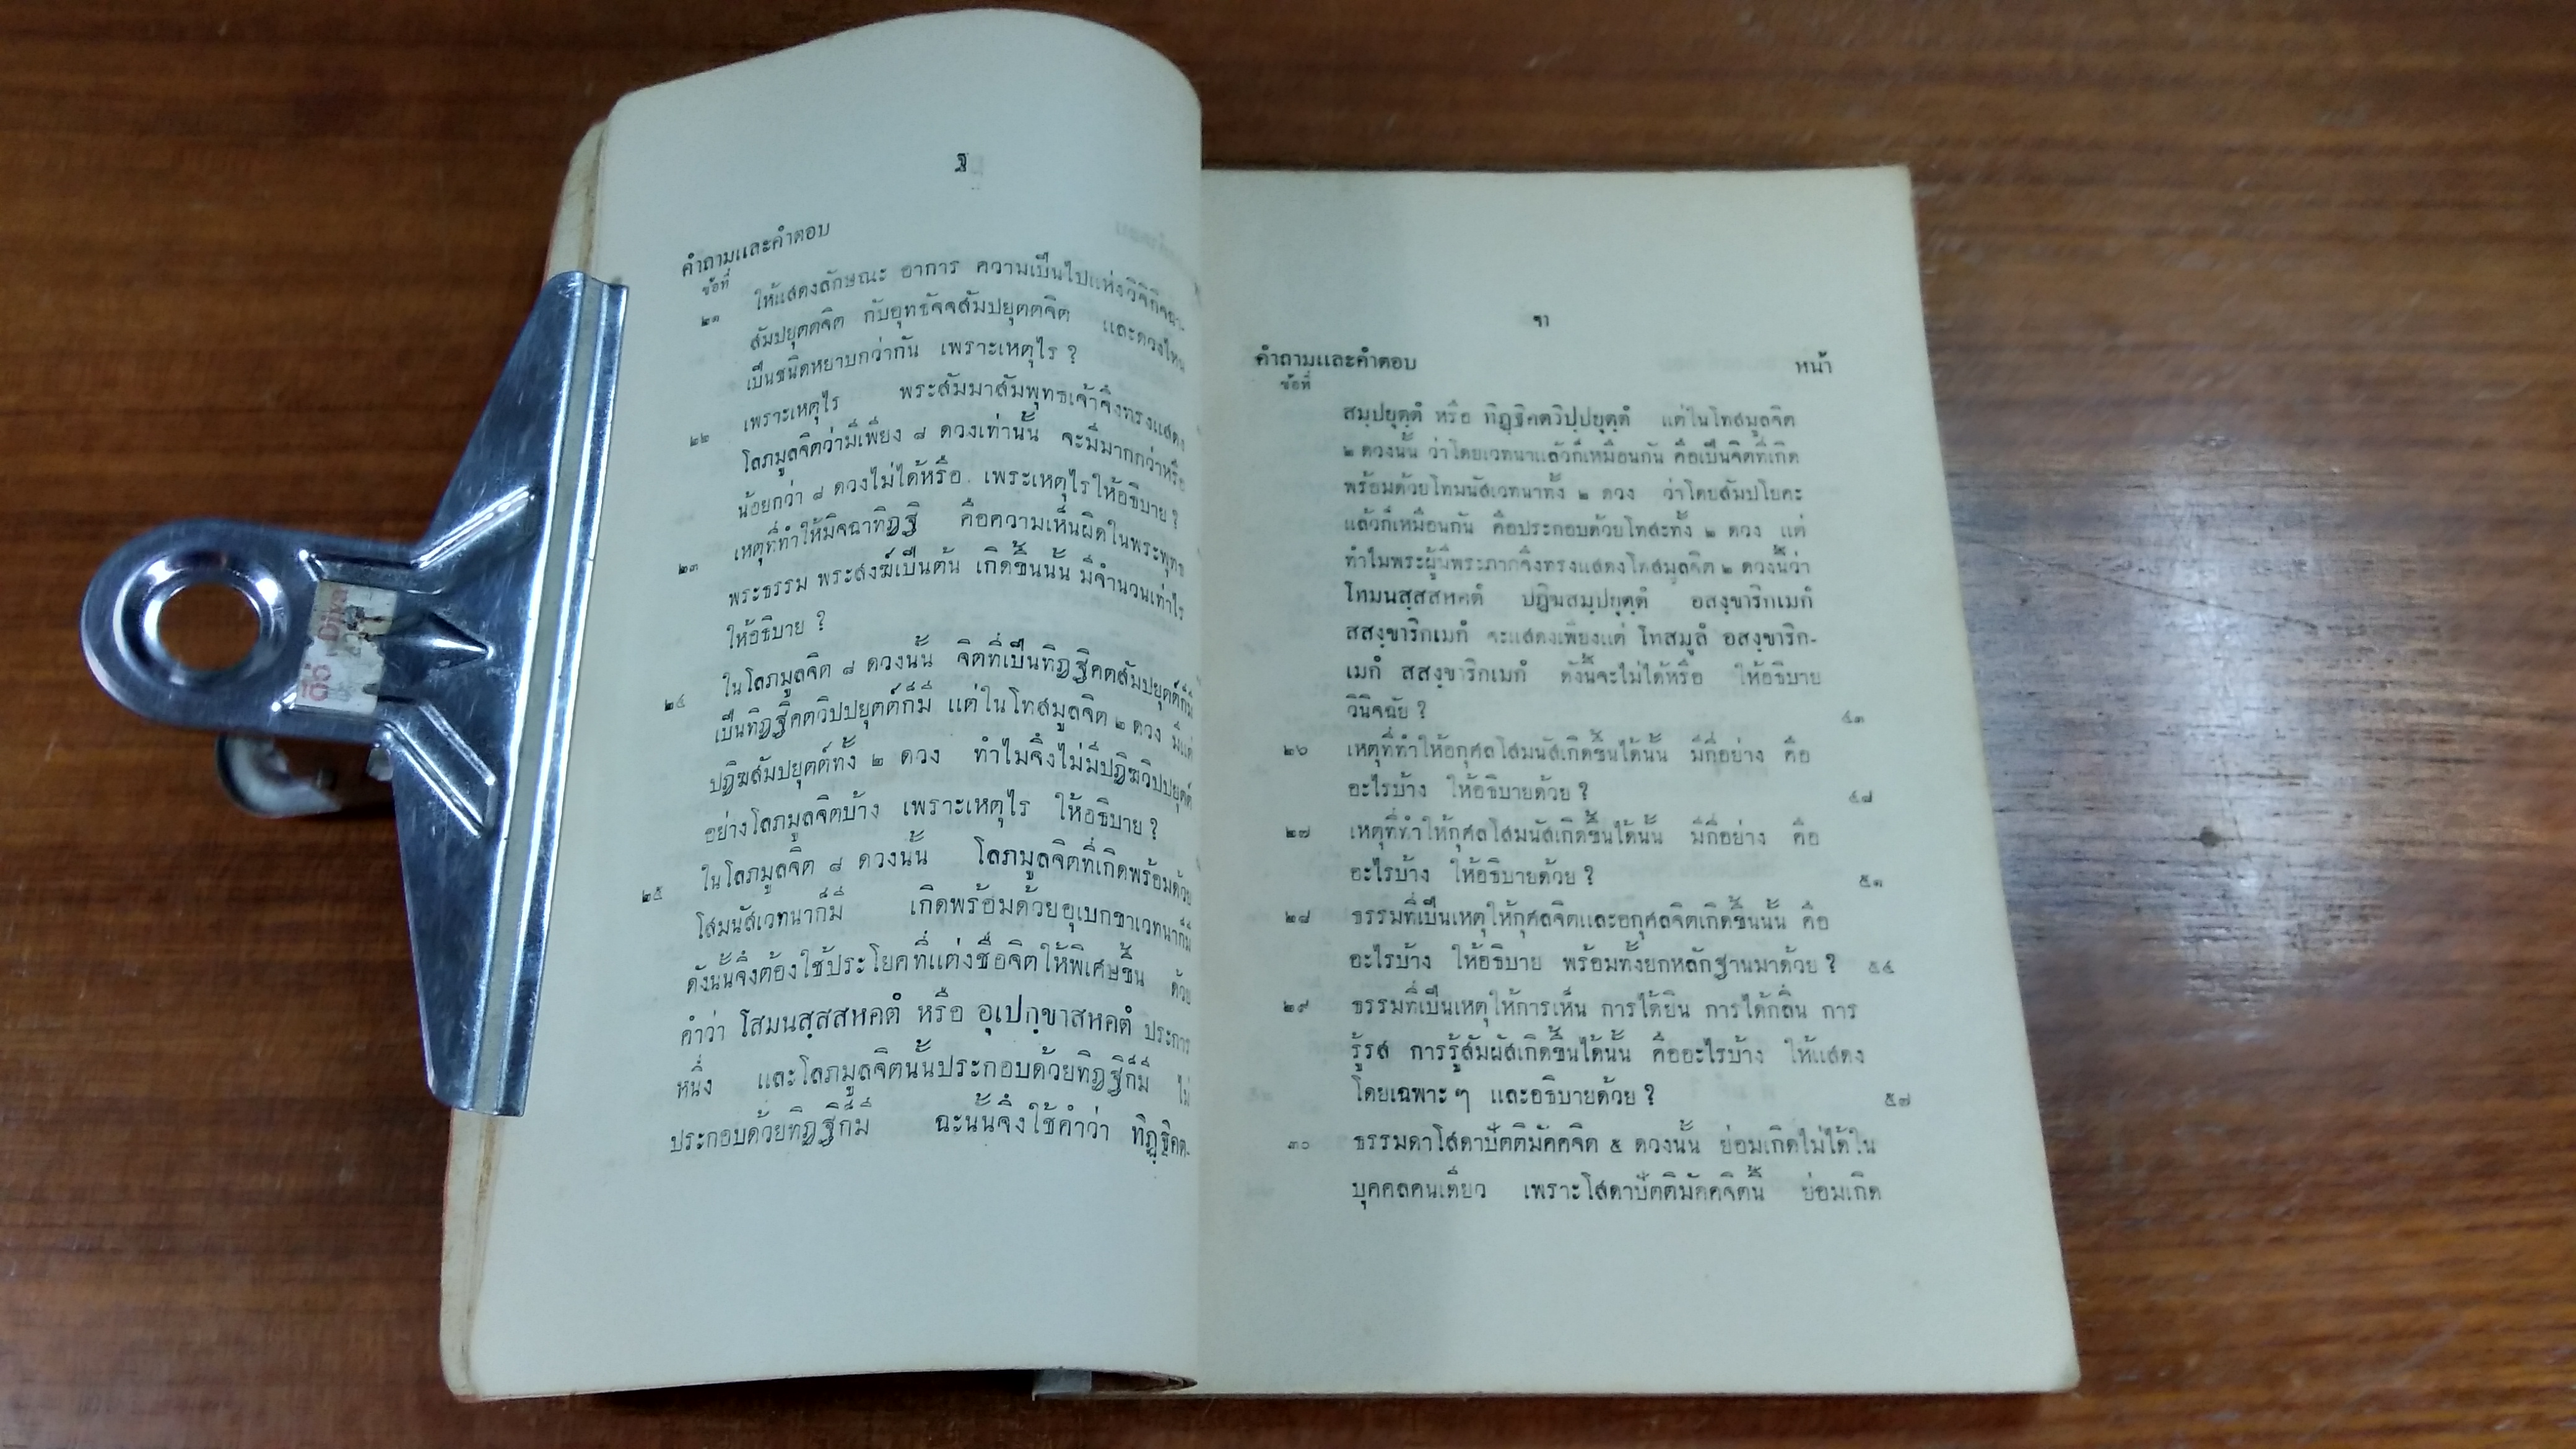 ฐ
คำถามและคำตอบ
ข้อที่
๒๑ ให้แสดงลักษณะ อาการ ความเป็นไปแห่งวิจิกิจฉา-
สัมปยุตตจิต กับอุทธัจจสัมปยุตตจิต และดวงไหน
เป็นชนิดหยาบกว่ากัน เพราะเหตุไร ?
๒๒ เพราะเหตุไร พระสัมมาสัมพุทธเจ้าจึงทรงแสดง
โลภมูลจิตว่ามีเพียง ๘ ดวงเท่านั้น จะมีมากกว่าหรือ
น้อยกว่า ๘ ดวงไม่ได้หรือ เพระเหตุไรให้อธิบาย ?
๒๓ เหตุที่ทำให้มิจฉาทิฏฐิ คือความเห็นผิดในพระพุทธ
พระธรรม พระสงฆ์เป็นต้น เกิดขึ้นนั้น มีจำนวนเท่าไร
ให้อธิบาย ?
๒๔ ในโลภมูลจิต ๘ ดวงนั้น จิตที่เป็นทิฏฐิคตสัมปยุตต์ก็มี
เป็นทิฏฐิคตวิปปยุตต์ก็มี แต่ในโทสมูลจิต ๒ ดวง มีแต่
ปฏิฆสัมปยุตต์ทั้ง ๒ ดวง ทำไมจึงไม่มีปฏิฆวิปปยุตต์
อย่างโลภมูลจิตบ้าง เพราะเหตุไร ให้อธิบาย ?
๒๕ ในโลภมูลจิต ๘ ดวงนั้น โลภมูลจิตที่เกิดพร้อมด้วย
โสมนัสเวทนาก็มี เกิดพร้อมด้วยอุเบกขาเวทนาก็มี
ดังนั้นจึงต้องใช้ประโยคที่แต่งชื่อจิตให้พิเศษขึ้น ด้วย
คำว่า โสมนสฺสสหคตํ หรือ อุเปกฺขาสหคตํ ประการ
หนึ่ง และโลภมูลจิตนั้นประกอบด้วยทิฏฐิก็มี ไม่
ประกอบด้วยทิฏฐิก็มี ฉะนั้นจึงใช้คำว่า ทิฏฺฐิคต-
คำถามและคำตอบ หน้า
ข้อที่
สมฺปยุตฺตํ หรือ ทิฏฺฐิคตวิปฺปยุตฺตํ แต่ในโทสมูลจิต
๒ ดวงนั้น ว่าโดยเวทนาแล้วก็เหมือนกัน คือเป็นจิตที่เกิด
พร้อมด้วยโทมนัสเวทนาทั้ง ๒ ดวง ว่าโดยสัมปโยคะ
แล้วก็เหมือนกัน คือประกอบด้วยโทสะทั้ง ๒ ดวง แต่
ทำไมพระผู้มีพระภาคจึงทรงแสดงโทสมูลจิต ๒ ดวงนี้ว่า
โทมนสฺสสหคตํ ปฏิฆสมฺปยุตฺตํ อสงฺขาริกเมกํ
สสงฺขาริกเมกํ จะแสดงเพียงแต่ โทสมูลํ อสงฺขาริก-
เมกํ สสงฺขาริกเมกํ ดังนี้จะไม่ได้หรือ ให้อธิบาย
วินิจฉัย ? ๔๓
๒๖ เหตุที่ทำให้อกุศลโสมนัสเกิดขึ้นได้นั้น มีกี่อย่าง คือ
อะไรบ้าง ให้อธิบายด้วย ? ๔๘
๒๗ เหตุที่ทำให้กุศลโสมนัสเกิดขึ้นได้นั้น มีกี่อย่าง คือ
อะไรบ้าง ให้อธิบายด้วย ? ๕๑
๒๘ ธรรมที่เป็นเหตุให้กุศลจิตและอกุศลจิตเกิดขึ้นนั้น คือ
อะไรบ้าง ให้อธิบาย พร้อมทั้งยกหลักฐานมาด้วย ? ๕๔
๒๙ ธรรมที่เป็นเหตุให้การเห็น การได้ยิน การได้กลิ่น การ
รู้รส การรู้สัมผัสเกิดขึ้นได้นั้น คืออะไรบ้าง ให้แสดง
โดยเฉพาะ ๆ และอธิบายด้วย ? ๕๗
๓๐ ธรรมดาโสดาปัตติมัคคจิต ๕ ดวงนั้น ย่อมเกิดไม่ได้ใน
บุคคลคนเดียว เพราะโสดาปัตติมัคคจิตนี้ ย่อมเกิด